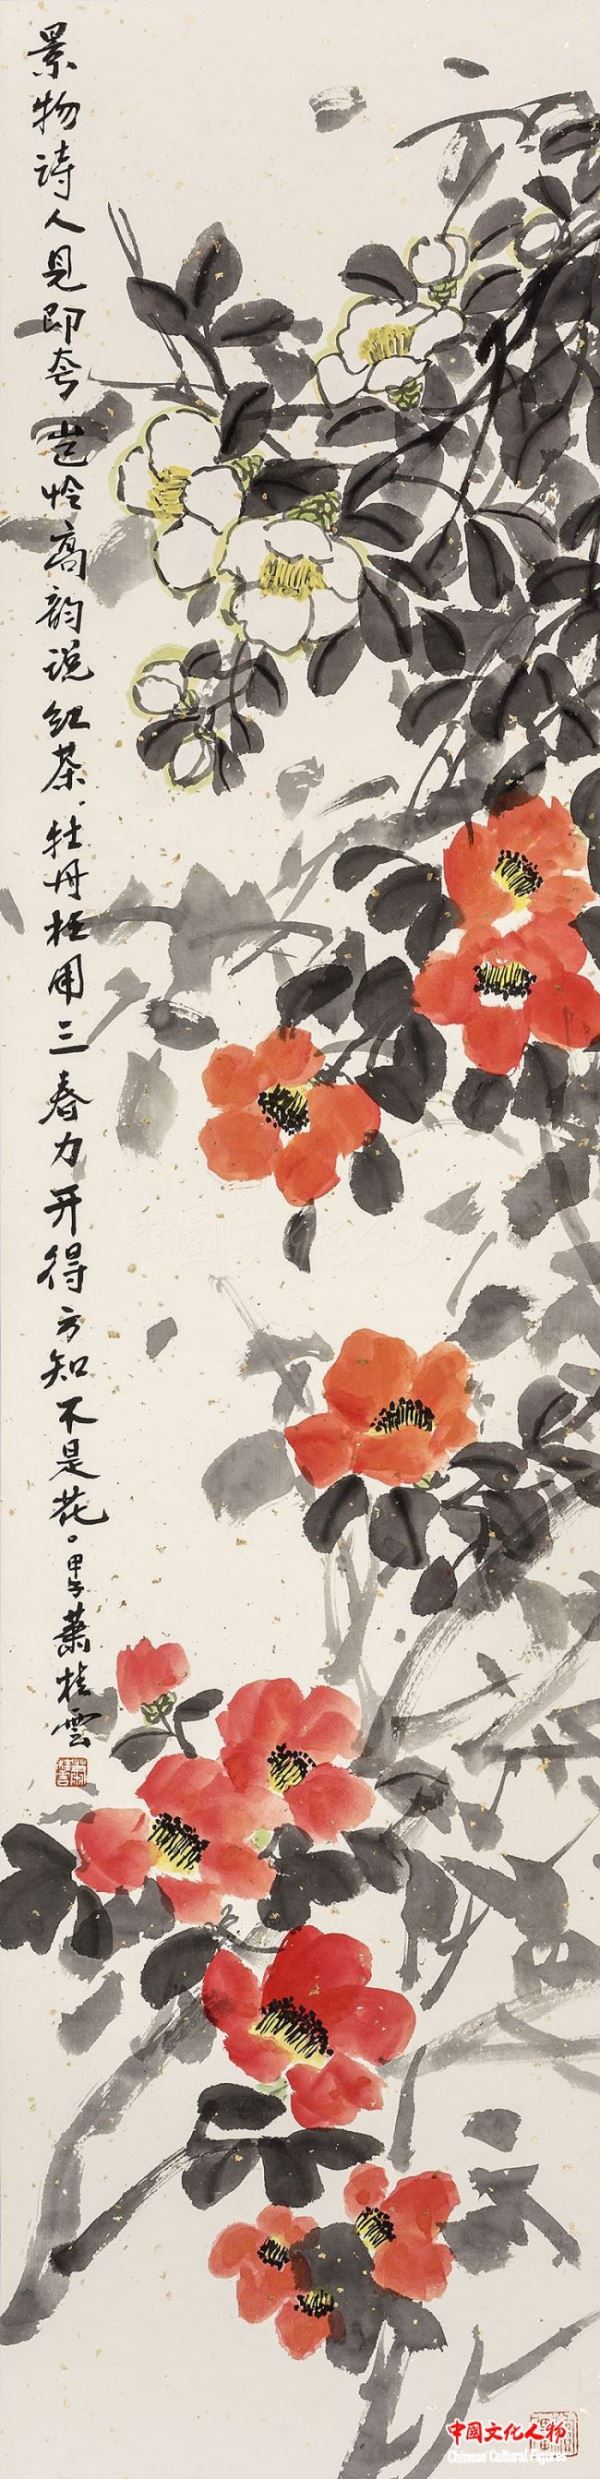 景物诗人见即夸岂怜高韵说红茶牡丹枉用三春力开得方知不是花。甲午萧桂云
中國文化人物
Chinese Cultural Figures